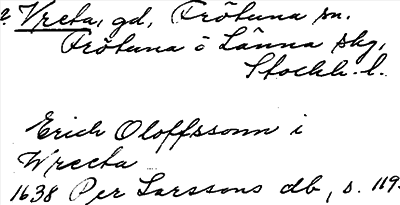 2. Vreta, gd, Frötuna sn.
Frötuna o Länna skg,
Stockh. l.
Erich Oloffssonn i
Wreeta
1638 Per Larssons db, s. 119.